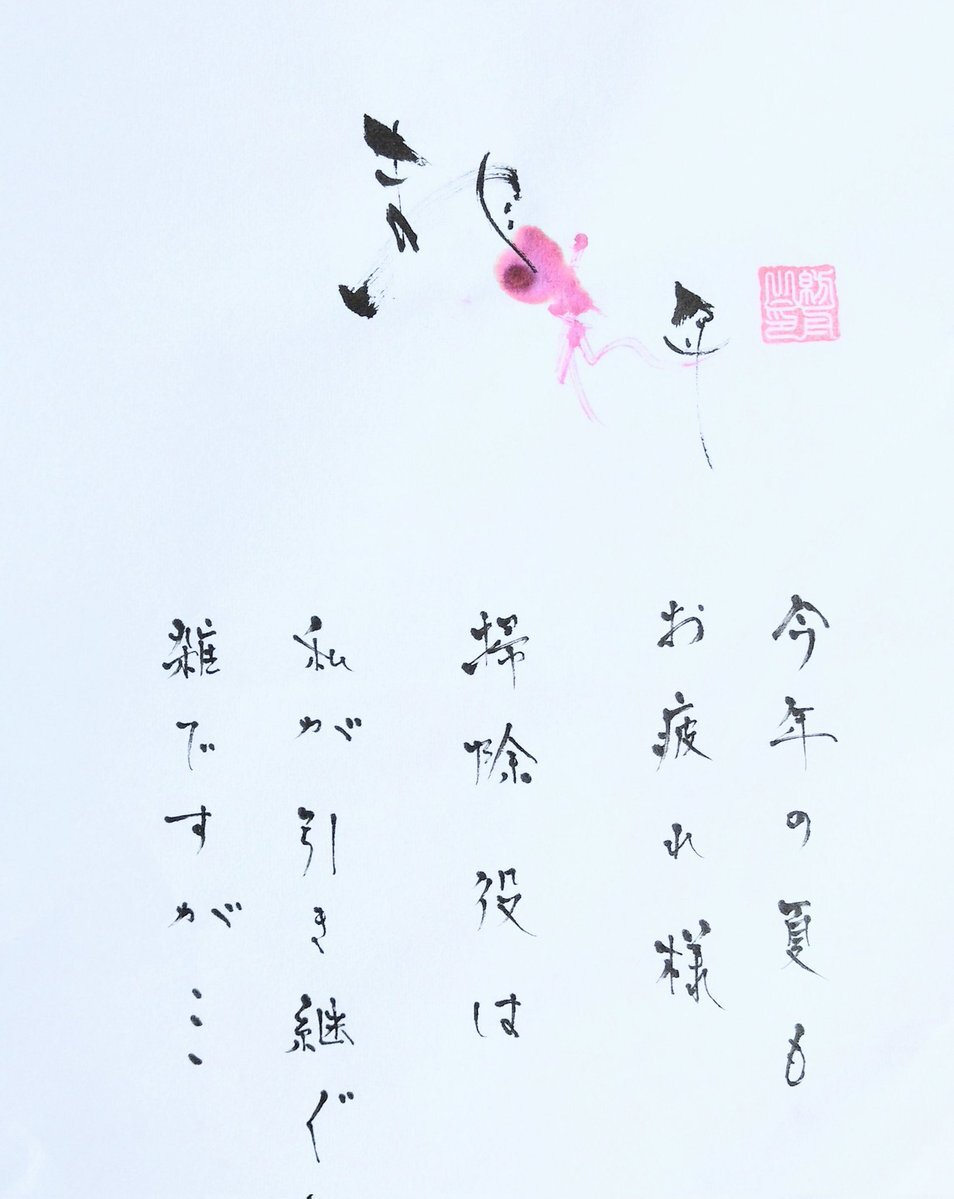 今年の夏も
お疲れ様
掃除役は
私が引き継ぐ
雑ですが…